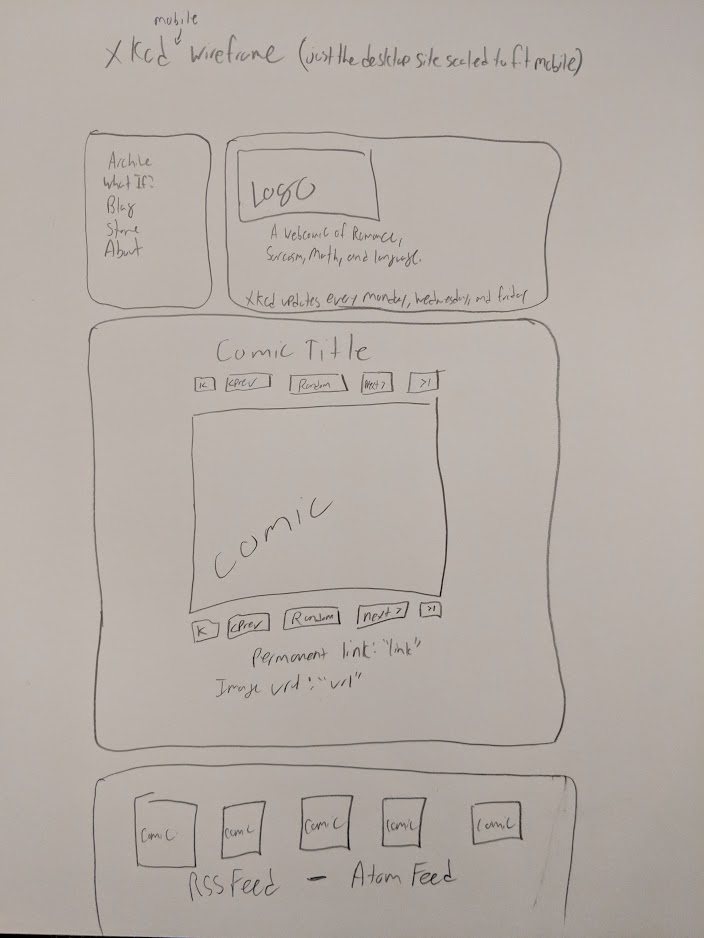 mobile
xkcd wireframe (just the desktop site scaled to fit mobile)
Archive
What If?
Blag
Store
About
Logo
A webcomic of Romance,
Sarcasm, Math, and language.
xkcd updates every monday, wednesday, and friday
Comic Title
|< <Prev Random Next> >|
Comic
|< <Prev Random next> >|
Permanent link: "link"
Image url: "url"
Comic Comic Comic Comic Comic
RSS Feed - Atom Feed